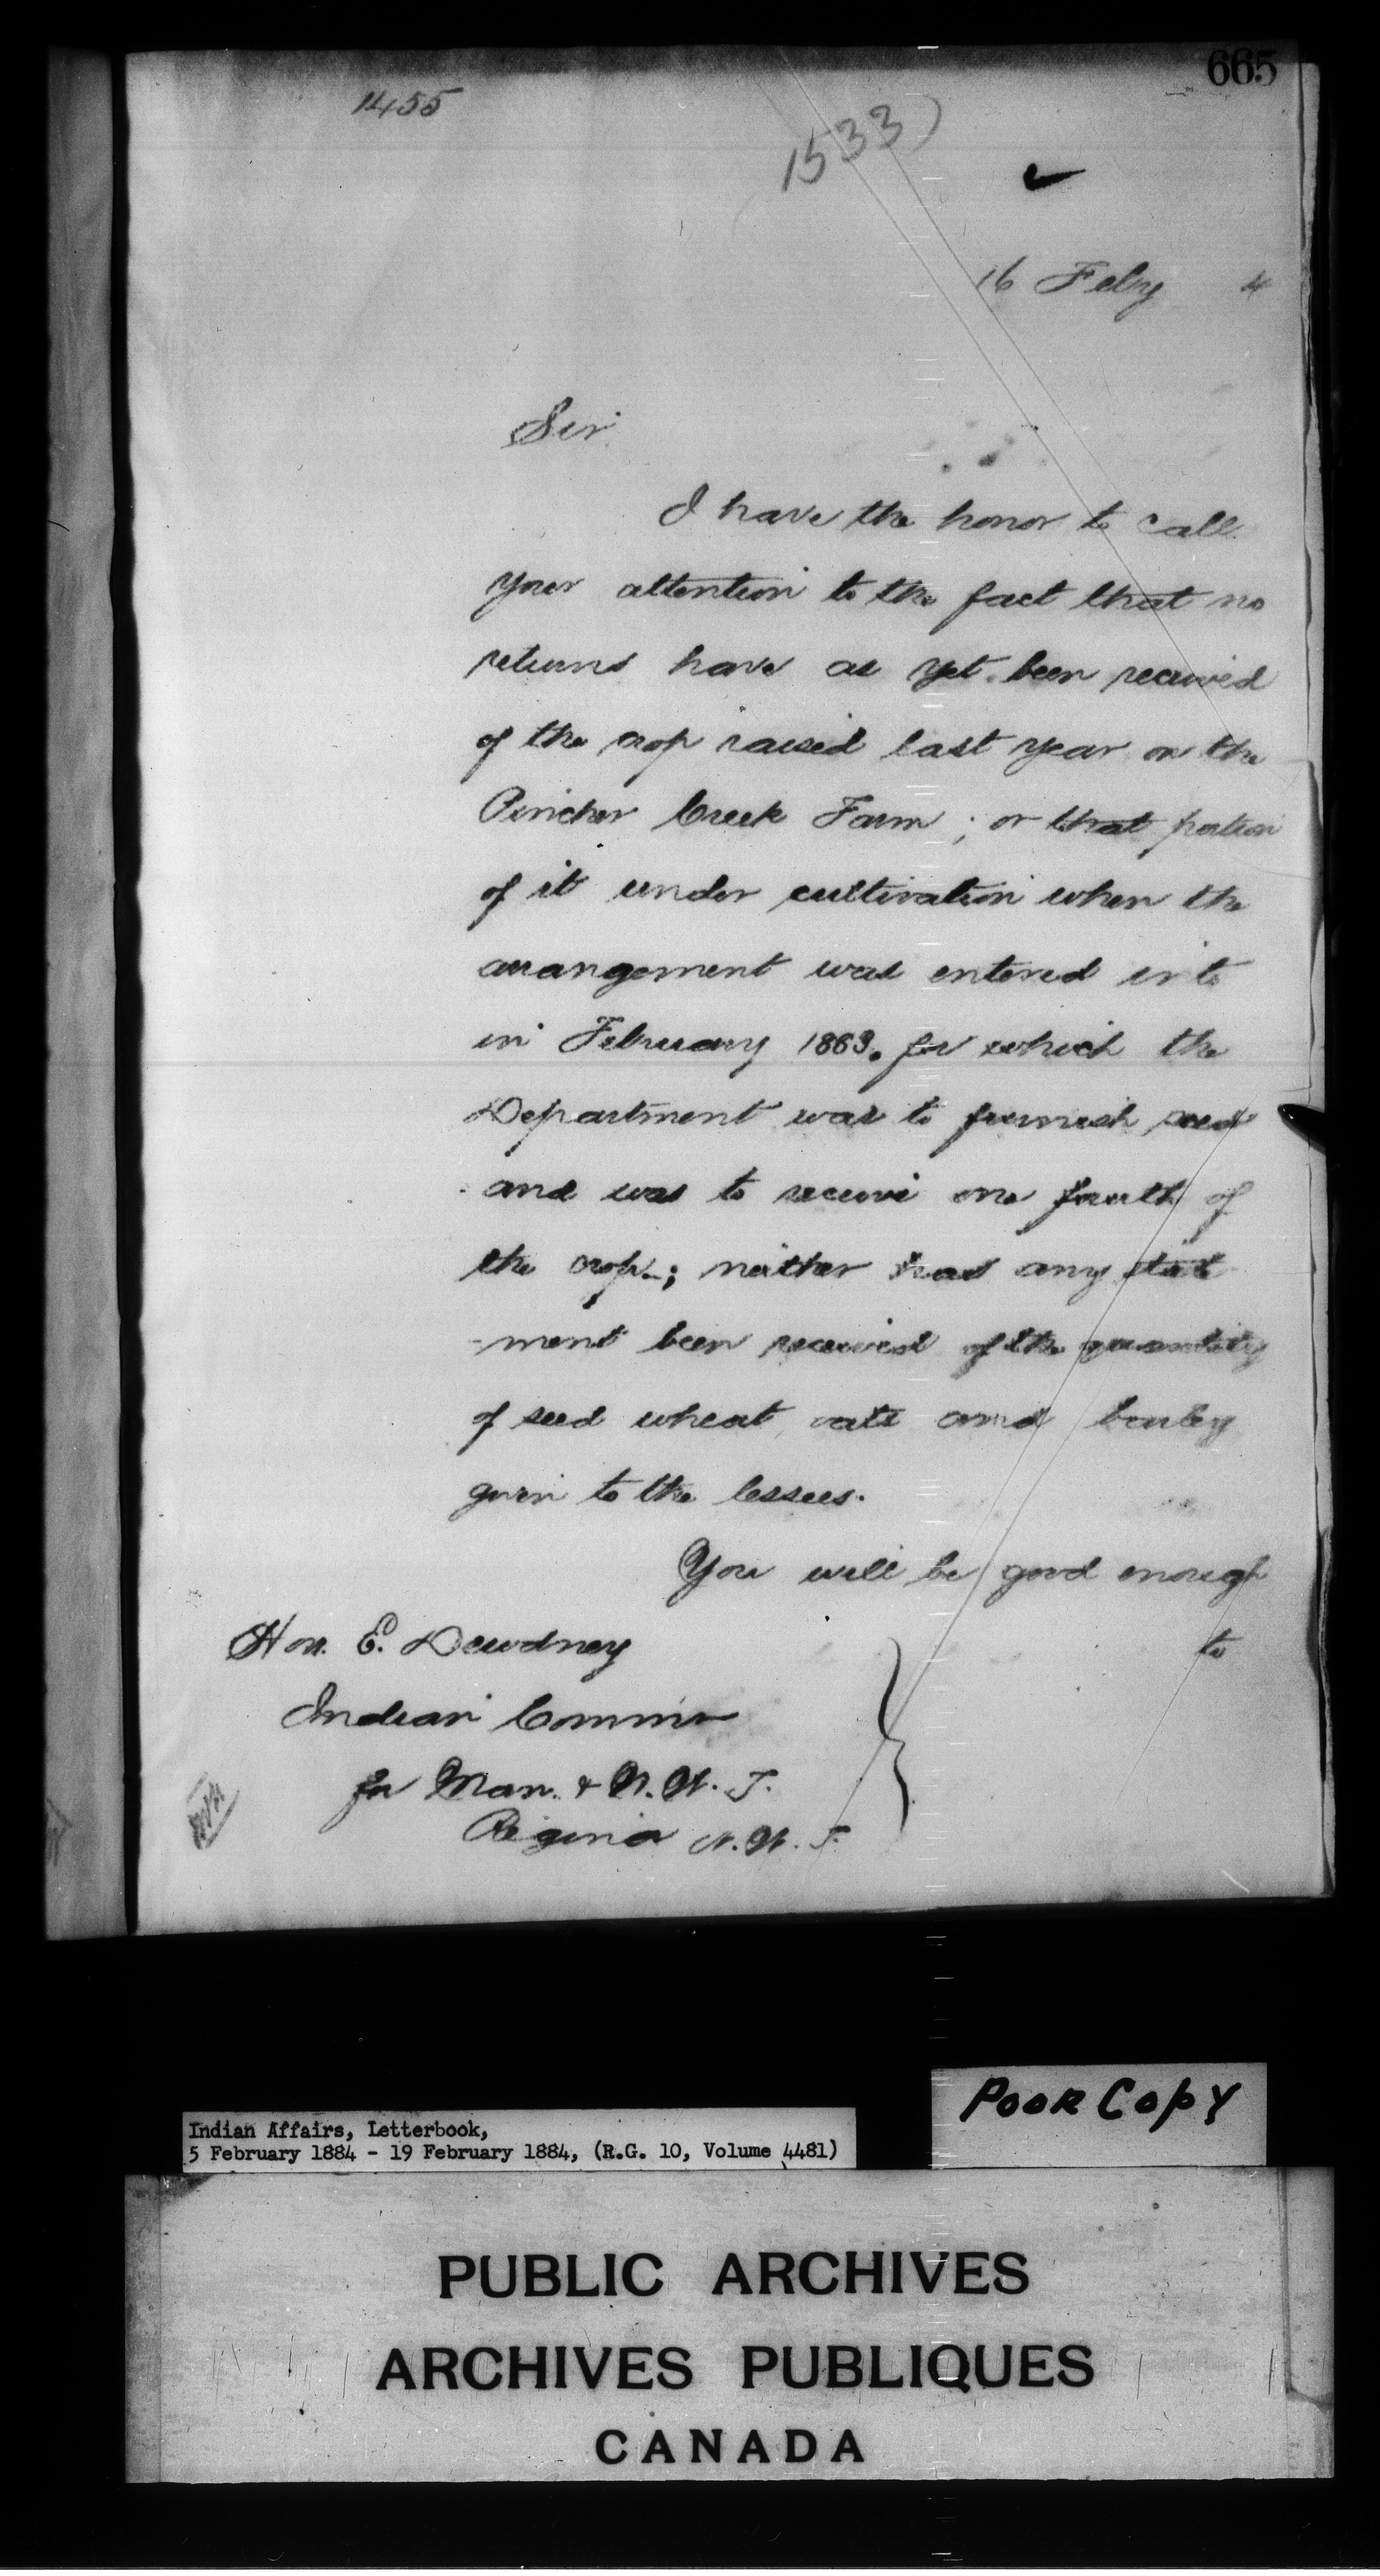 665
1455
1533)
16 Feby 4
Sir
I have the honor to call
your attention to the fact that no
returns have as yet been received
of the crop raised last year on the
Pincher Creek Farm ; or that portion
of it under cultivation when the
arrangement was entered into
in February 1883. for which the
Department was to furnish seed
and was to receive one fourth of
the crop; neither has any state
-ment been received of the quantity
of seed wheat, oats and barley
given to the lessees.
You will be good enough
to
Hon. E. Dewdney
Indian Commr
for Man. & N. W. T.
Regina N. W. T.
Poor Copy
Indian Affairs, Letterbook,
5 February 1884 - 19 February 1884, (R.G. 10, Volume 4481)
PUBLIC ARCHIVES
ARCHIVES PUBLIQUES
CANADA